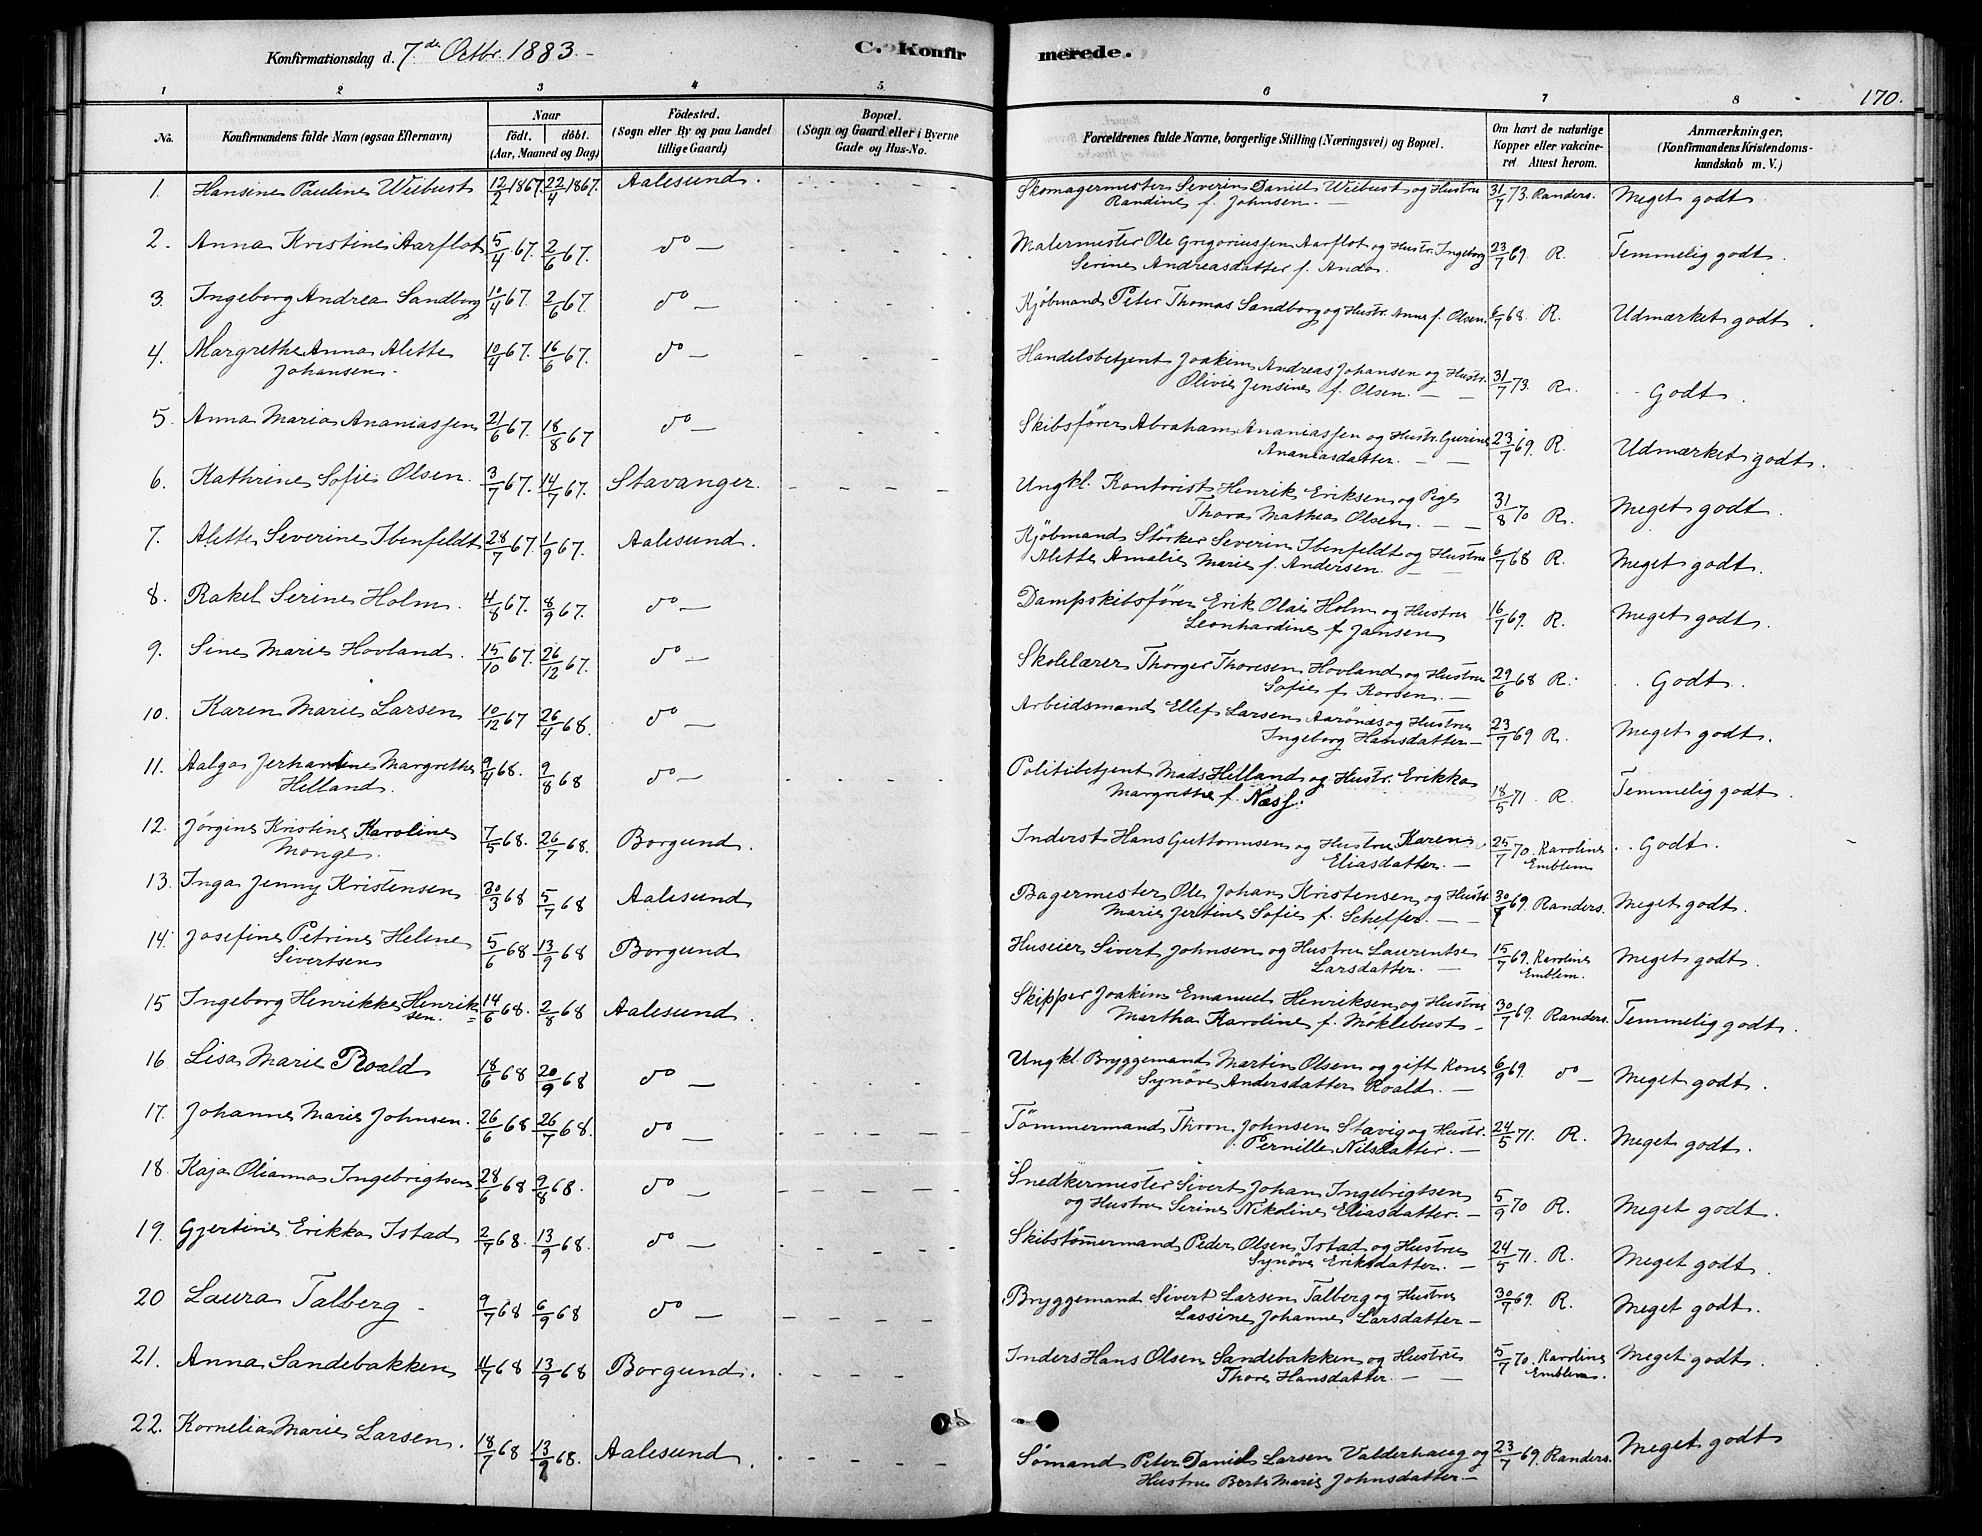 Konfirmationsdag d. 7de Octbr. 1883. –
C. Konfir
merede.
170.
1 2 3 4 5 6 7 8
No.
Konfirmandens fulde Navn (ogsaa Efternavn)
Naar
födt. döbt.
(Aar, Maaned og Dag)
Födested.
(Sogn eller By og paa Landet
tillige Gaard)
Bopæl.
(Sogn og Gaard eller i Byerne
Gade og Hus-No.
Forældrenes fulde Navne, borgerlige Stilling (Næringsvei) og Bopæl.
Om havt de naturlige
Kopper eller vakcine-
ret. Attest herom.
Anmærkninger,
(Konfirmandens Kristendoms-
kundskab m. V.)
1. Hansine Pauline Wiibust 12/2 1867. 22/4 1867. Aalesund. Skomagermester Severin Daniel Wiibust og Hustru 31/7 73. Randers. Meget godt
Randine f. Johnsen. –
2. Anna Kristine Aarflot 5/4 67. 2/6 67. do – Malermester Ole Gregoriussen Aarflot og Hustr. Ingeborg 23/7 69. R. Temmelig godt.
Serine Andreasdatter f. Anda.
3. Ingeborg Andrea Sandborg 10/4 67. 2/6 67. do – Kjöbmand Peter Thomas Sandborg og Hustr. Anne f. Olsen. 6/7 68. R. Udmærket godt.
4. Margrethe Anna Alette 10/4 67. 16/6 67. do – Handelsbetjent Joakim Andreas Johansen og Hustr. 31/7 73. R. Godt.
Johansen. Olivie Jensine f. Olsen.
5. Anna Maria Ananiassen 21/6 67. 18/8 67 do – Skibsförer Abraham Ananiassen og Hustr. Gurine 23/7 69. R. Udmærket godt.
Ananiasdatter.
6. Kathrine Sofie Olsen. 3/7 67. 14/7 67. Stavanger. Ungkl. Kontorist Henrik Eriksen og Pige 31/8 70 R. Meget godt.
Thora Mathea Olsen.
7. Alette Severine Ibenfeldt 28/7 67. 1/9 67. Aalesund. Kjöbmand Störker Severin Ibenfeldt og Hustru 6/7 68 R. Meget godt.
Alette Amalie Marie f. Andersen.
8. Rakel Serine Holm. 4/8 67. 8/9 67. do – Dampskibsförer Erik Olai Holm og Hustru 16/7 69. R. Meget godt.
Leonhardine f. Jansen
9. Sine Marie Hovland. 15/10 67. 26/12 67. do – Skolelærer Thorger Thoresen Hovland og Hustru 29/6 68 R. Godt.
Sofie f. Korsen.
10. Karen Marie Larsen 10/12 67 26/4 68. do – Arbeidsmand Ellef Larsen Aarönæs og Hustru 23/7 69 R. Meget godt.
Ingeborg Hansdatter –
11. Aalga Jerhantine Margrethe 9/4 68. 9/8 68 do – Politibetjent Mads Helland og Hustr. Erikka 18/5 71. R. Temmelig godt.
Helland. Margrethe f. Næss.
12. Jörgine Kristine Karoline 7/5 68. 26/7 68. Borgund. Inderst Hans Guttormsen og Hustru Karen 25/7 70. Karoline Godt.
Monge. Eliasdatter. – Emblem
13. Inga Jenny Kristensen 30/3 68 5/7 68 Aalesund Bagermester Ole Johan Kristensen og Hustr. 30/7 69. Randers. Meget godt.
Marie Jertine Sofie f. Scheffer.
14. Josefine Petrine Helene 5/6 68 13/9 68 Borgund Huseier Sivert Johnsen og Hustru Laurentse 15/7 69. Karoline Meget godt.
Sivertsen Larsdatter. Emblem.
15 Ingeborg Henrikke Henrik- 14/6 68. 2/8 68 Aalesund. Skipper Joakim Emanuel Henriksen og Hustru 30/7 69. Randers. Temmelig godt.
sen. Martha Karoline f. Möklebust –
16 Lisa Marie Roald 18/6 68 20/9 68 do – Ungkl. Bryggemand Martin Olsen og gift Kone 6/9 69. do – Meget godt.
Synöve Andersdatter Roald. –
17. Johanne Marie Johnsen. 26/6 68 26/7 68. do – Tömmermand Thron Johnsen Stavig og Hustr. 24/5 71. R. Meget godt.
Pernille Nilsdatter. –
18. Kaja Olianna Ingebrigtsen 28/6 68 9/8 68. do – Snedkermester Sivert Johan Ingebrigtsen 5/9 70 R. Meget godt.
og Hustru Serine Nikoline Eliasdatter. –
19. Gjertine Erikka Istad 2/7 68. 13/9 68. do – Skibstömmermand Peder Olsen Istad og Hustru 24/5 71. R. Meget godt.
Synöve Eriksdatter. –
20 Laura Talberg 9/7 68 6/9 68 do – Bryggemand Sivert Larsen Talberg og Hustru 30/7 69. R. Meget godt.
Lassine Johanne Larsdatter –
21. Anna Sandebakken 11/7 68 13/9 68 Borgund. Inders Hans Olsen Sandebakken og Hustru 5/7 70. Karoline Meget godt.
Thore Hansdatter. Emblem.
22. Kornelia Marie Larsen. 18/7 68 13/9 68. Aalesund. Sömand Peter Daniel Larsen Valderhaug og 23/7 69. Randers. Meget godt
Hustru Berte Marie Johnsdatter –